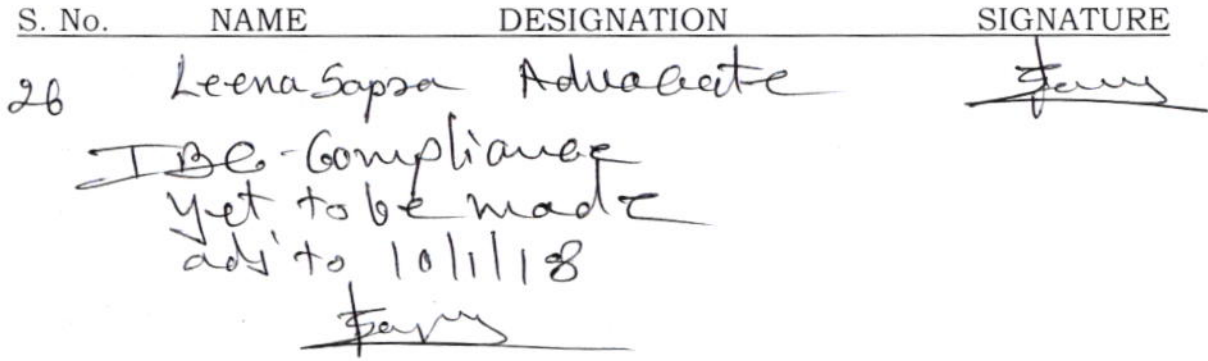 S. No. NAME DESIGNATION SIGNATURE
26 Leena Sapra Advocate
IBC-Compliance
yet to be made
adj to 10/1/18